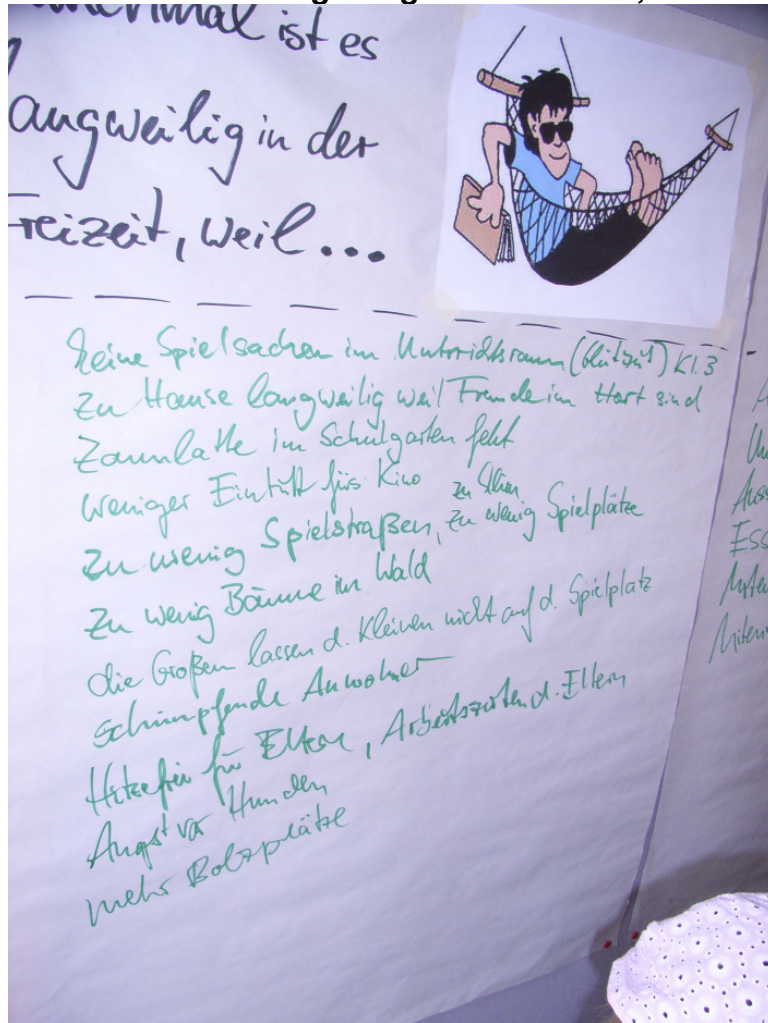 manchmal ist es
langweilig in der
Freizeit, weil...
keine Spielsachen im Unterrichtsraum Kl.3
zu Hause langweilig weil Freunde im Hort sind
Zaunlatte im Schulgarten fehlt
weniger Eintritt fürs Kino
zu wenig Spielstraßen, zu wenig Spielplätze
zu wenig Bäume im Wald
die Großen lassen d. Kleinen nicht auf d. Spielplatz
schimpfende Anwohner
Hitzefrei für Eltern, Arbeitszeiten d. Eltern
Angst vor Hunden
mehr Bolzplätze